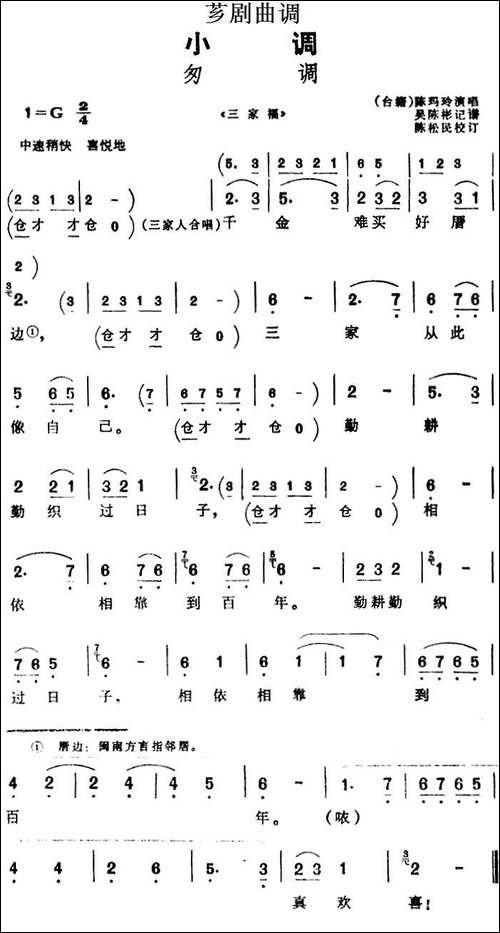 芗剧曲调
小 调
匆 调
1=G 2/4
《三家福》
(台籍)陈玛玲演唱
吴陈彬记谱
陈松民校订
中速稍快 喜悦地
(5. 3 2 3 2 1 6 5 1 2 3
(2 3 1 3 2 -) 2. 3 5. 3 2 3 2 3 3 1
(仓才 才仓 0) (三家人合唱)千 金 难买 好 厝
2)
3 2. (3 2 3 1 3 2 -) 6 - 2. 7 6 7 6
边①, (仓才 才 仓 0) 三 家 从此
5 6 5 6. (7 6 7 5 7 6 -) 2 - 5. 3
像 自 己。 (仓才 才仓 0) 勤 耕
2 2 1 3 2 1 3 2. (3 2 3 1 3 2 -) 6 -
勤 织 过 日 子, (仓才 才 仓 0) 相
2. 7 6 7 6 7 6 7 6 5 6 - 2 3 2 2 1 -
依 相 靠 到 百 年。 勤耕勤 织
7 6 5 7 6 - 6 1 6 1 1 7 6 7 6 5
过 日 子, 相 依 相 靠 到
① 厝边:闽南方言指邻居。
4 2 2 4 4 5 6 - 1. 7 6 7 6 5
百 年。 (哝)
4 4 2 6 5. 3 2 3 1 3 2 -
真 欢 喜!